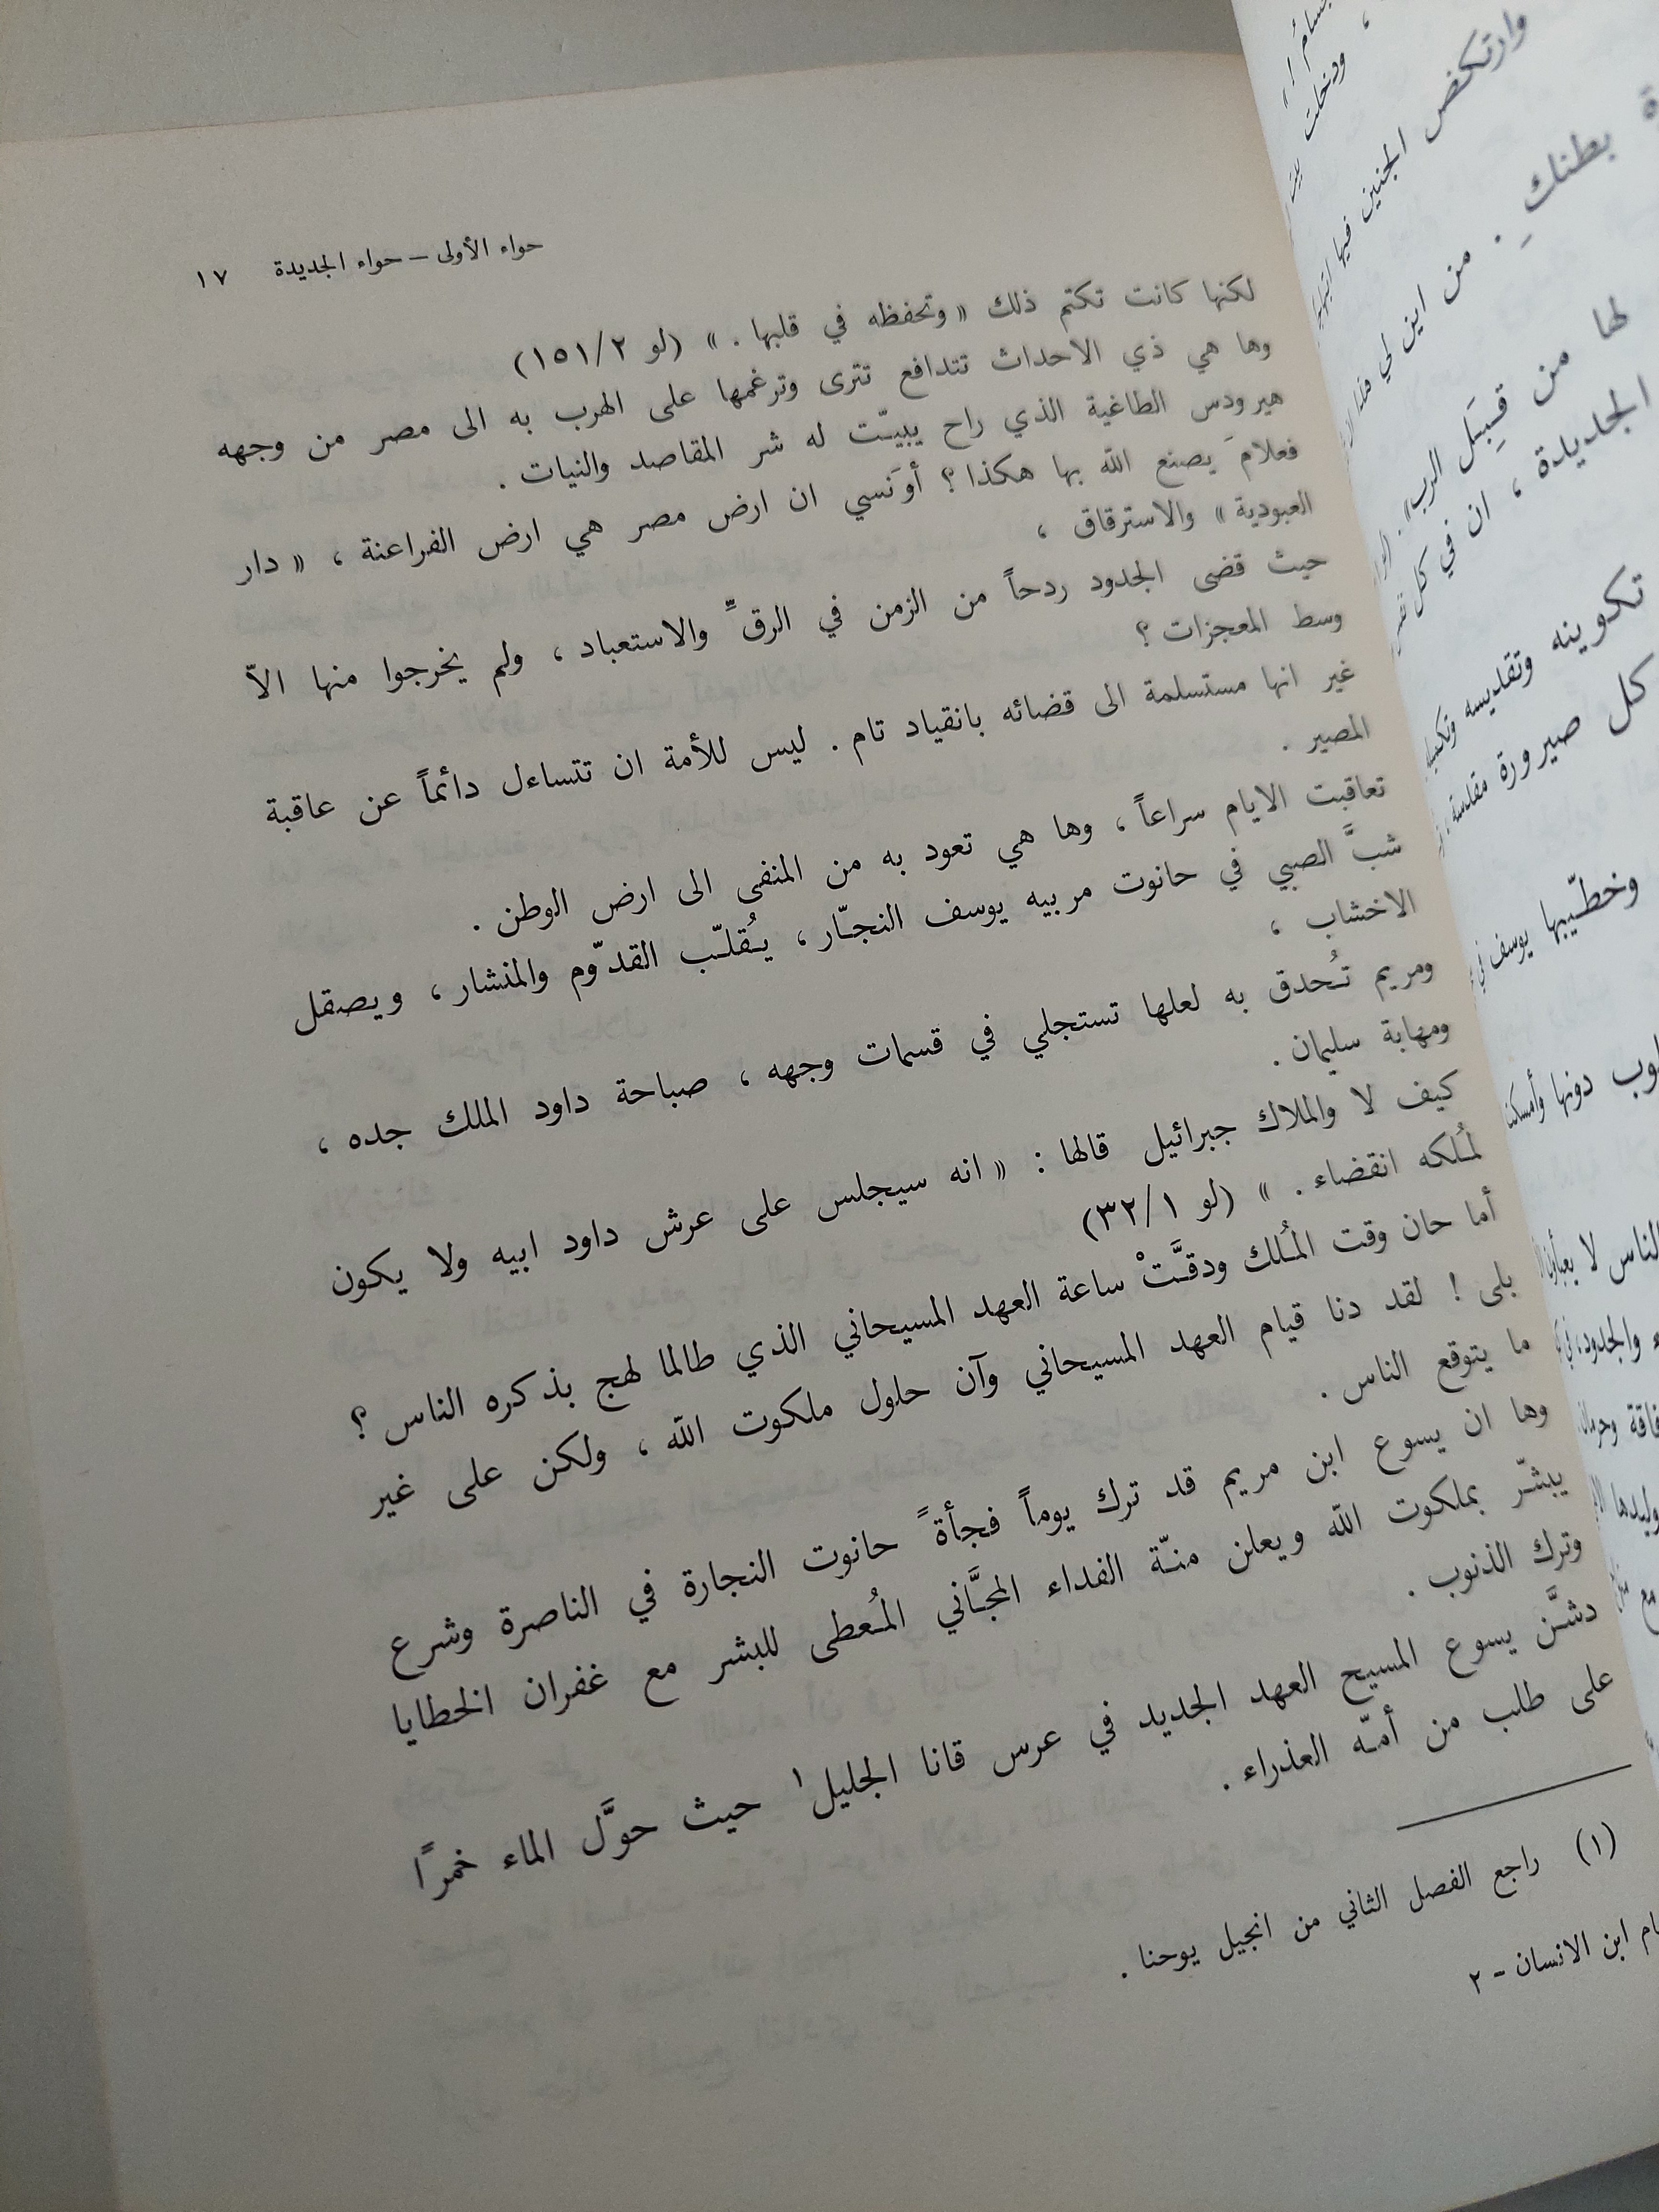 حواء الأولى – حواء الجديدة ١٧
لكنها كانت تكتم ذلك « وتحفظه في قلبها . » (لو ١٥١/٢)
وها هي ذي الاحداث تتدافع تترى وترغمها على الهرب به الى مصر من وجهه
هيرودس الطاغية الذي راح يبيّت له شر المقاصد والنيات .
فعلامَ يصنع الله بها هكذا ؟ أوَنسي ان ارض مصر هي ارض الفراعنة ، « دار
العبودية » والاسترقاق ،
حيث قضى الجدود ردحاً من الزمن في الرقّ والاستعباد ، ولم يخرجوا منها الاّ
وسط المعجزات ؟
غير انها مستسلمة الى قضائه بانقياد تام . ليس للأمة ان تتساءل دائماً عن عاقبة
المصير .
تعاقبت الايام سراعاً ، وها هي تعود به من المنفى الى ارض الوطن .
شبَّ الصبي في حانوت مربيه يوسف النجّار ، يُقلّب القدّوم والمنشار ، ويصقل
الاخشاب ،
ومريم تُحدق به لعلها تستجلي في قسمات وجهه ، صباحة داود الملك جده ،
ومهابة سليمان .
كيف لا والملاك جبرائيل قالها : « انه سيجلس على عرش داود ابيه ولا يكون
لمُلكه انقضاء . » (لو ٣٢/١)
أما حان وقت المُلك ودقَّتْ ساعة العهد المسيحاني الذي طالما لهج بذكره الناس ؟
بلى ! لقد دنا قيام العهد المسيحاني وآن حلول ملكوت الله ، ولكن على غير
ما يتوقع الناس .
وها ان يسوع ابن مريم قد ترك يوماً فجأةً حانوت النجارة في الناصرة وشرع
يبشّر بملكوت الله ويعلن منّة الفداء المجَّاني المُعطى للبشر مع غفران الخطايا
وترك الذنوب .
دشَّن يسوع المسيح العهد الجديد في عرس قانا الجليل١ حيث حوَّل الماء خمرًا
على طلب من أمّه العذراء .
(١) راجع الفصل الثاني من انجيل يوحنا .
ابن الانسان - ٢
وارتكض الجنين فيها
بطنكِ . من اين لي هذا
لها من قِبَل الرب» .
الجديدة ، ان في كل
تكوينه وتقديسه
كل صيرورة مقدسة
وخطّيبها يوسف في
دونها وأمسكت
الناس لا يعبأون
والجدود، في
وليدها